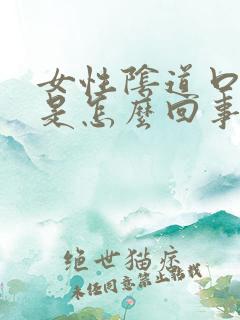 女性陰道口
是怎麼回事
绝世猫症
未经同意禁止转载